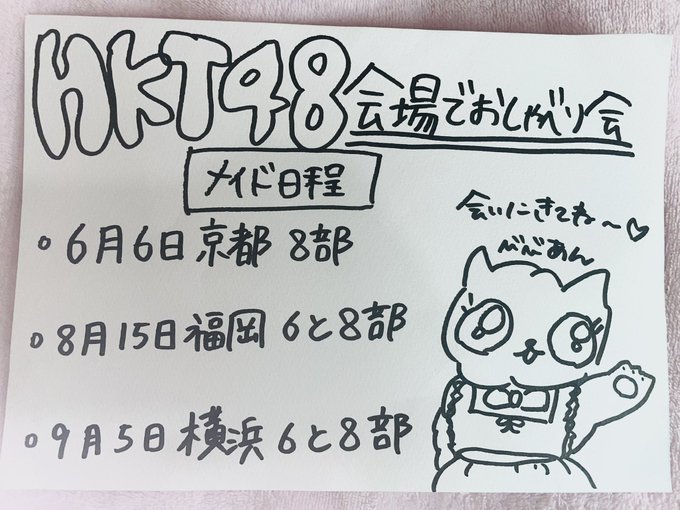 HKT48 会場でおしゃべり会
メイド日程
。6月6日京都 8部
。8月15日福岡 6と8部
。9月5日横浜 6と8部
会いにきてね〜♡
べびあん